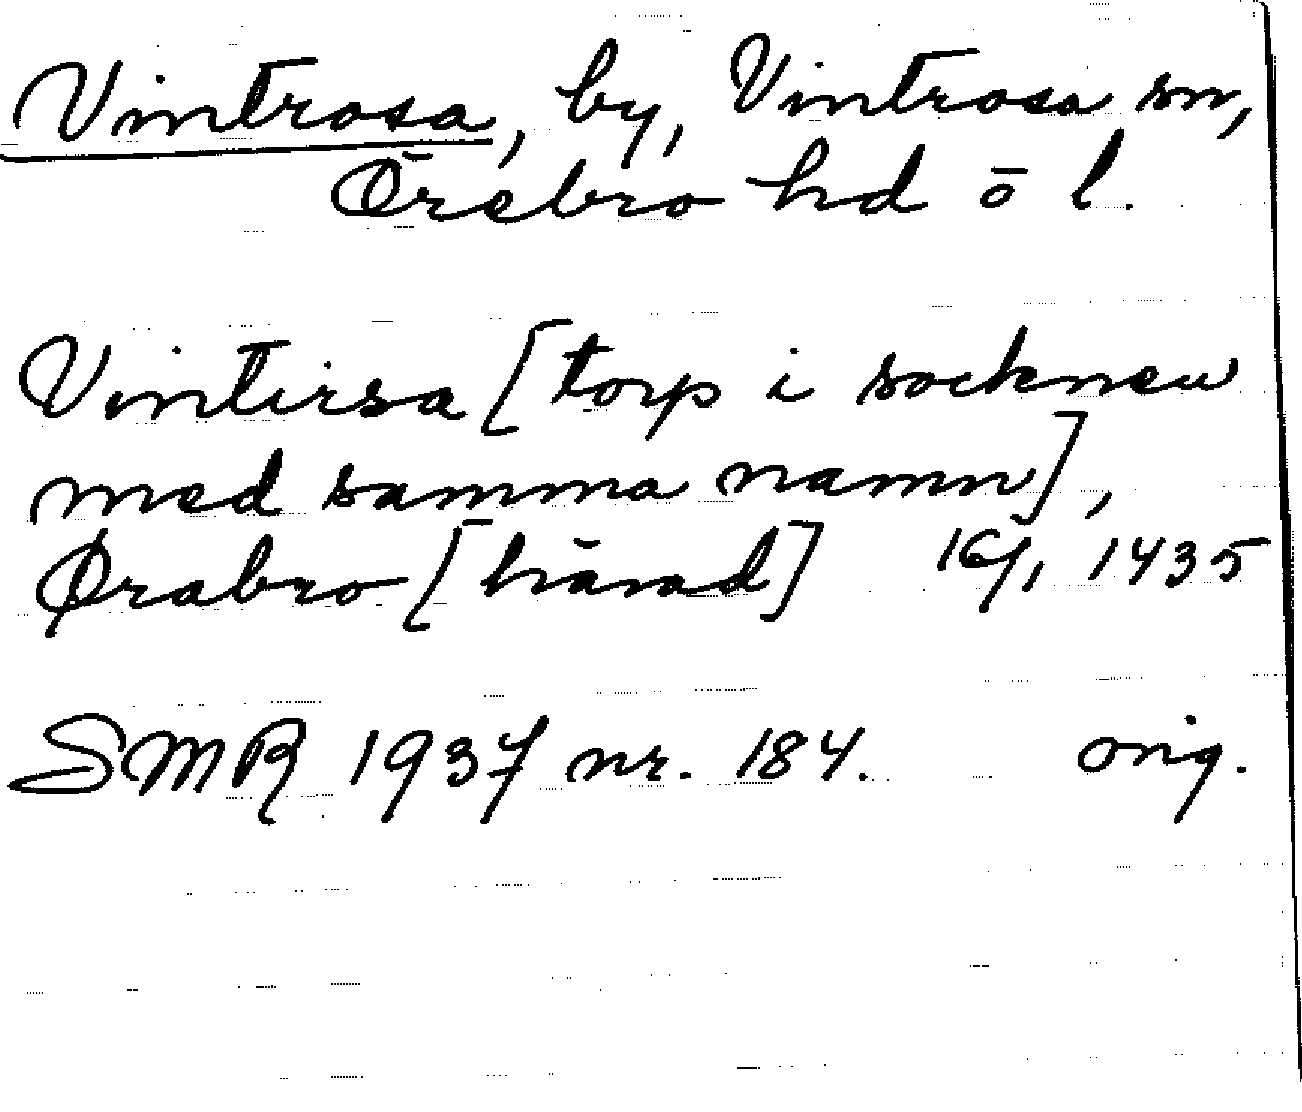 Vintrosa, by, Vintrosa sn,
Örebro hd ö l.
Vintirsa [torp i socknen
med samma namn],
Ørabro [härad] 16/1 1435
SMR 1937 nr. 184. orig.